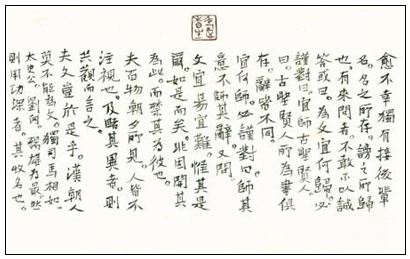 愈不幸獨有接後輩
名。名之所存。謗之所歸
也。有來問者。不敢不以誠
答。或曰。為文宜何歸。必
謹對曰。宜師古聖賢人。
曰。古聖賢人所為書俱
存。辭皆不同。
宜何師。必謹對曰。師其
意。不師其辭。又問
文宜易宜難。惟其是
爾。如是而矣。非固開其
為此。而禁其為彼也。
夫百物朝夕所見。人皆不
注視也。及睹其異者。則
共觀而言之。
夫文豈於是乎。漢朝人
莫不能為文。獨司馬相如。
太史公。劉向。揚雄為最。然
則用功深者。其收名也。